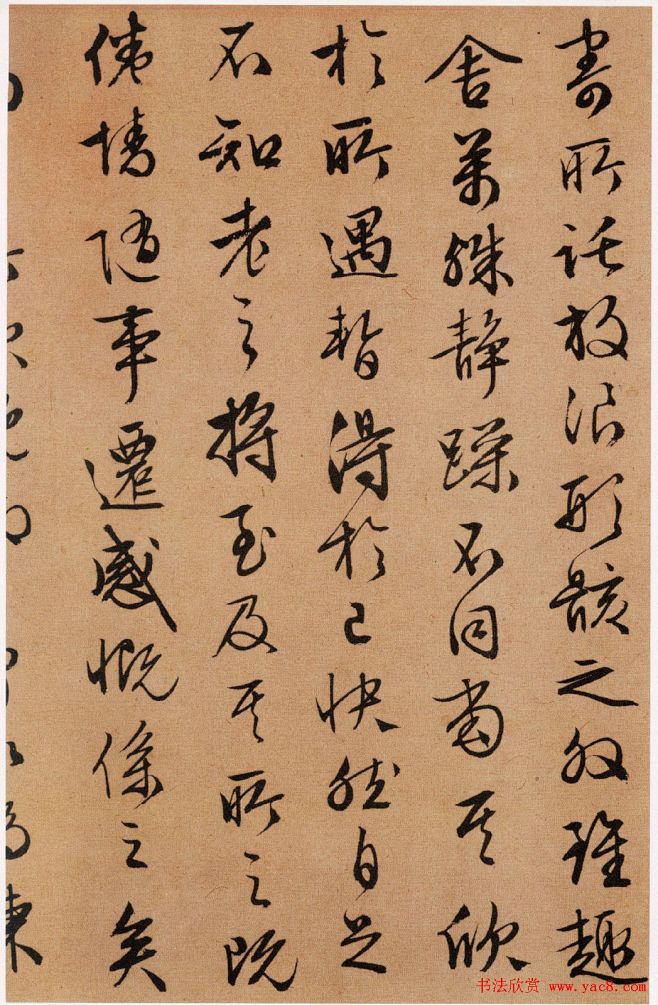 寄所託放浪形骸之外雖趣
舍萬殊靜躁不同當其欣
於所遇暫得於己快然自足
不知老之將至及其所之既
倦情隨事遷感慨係之矣
書法欣赏 www.yac8.com